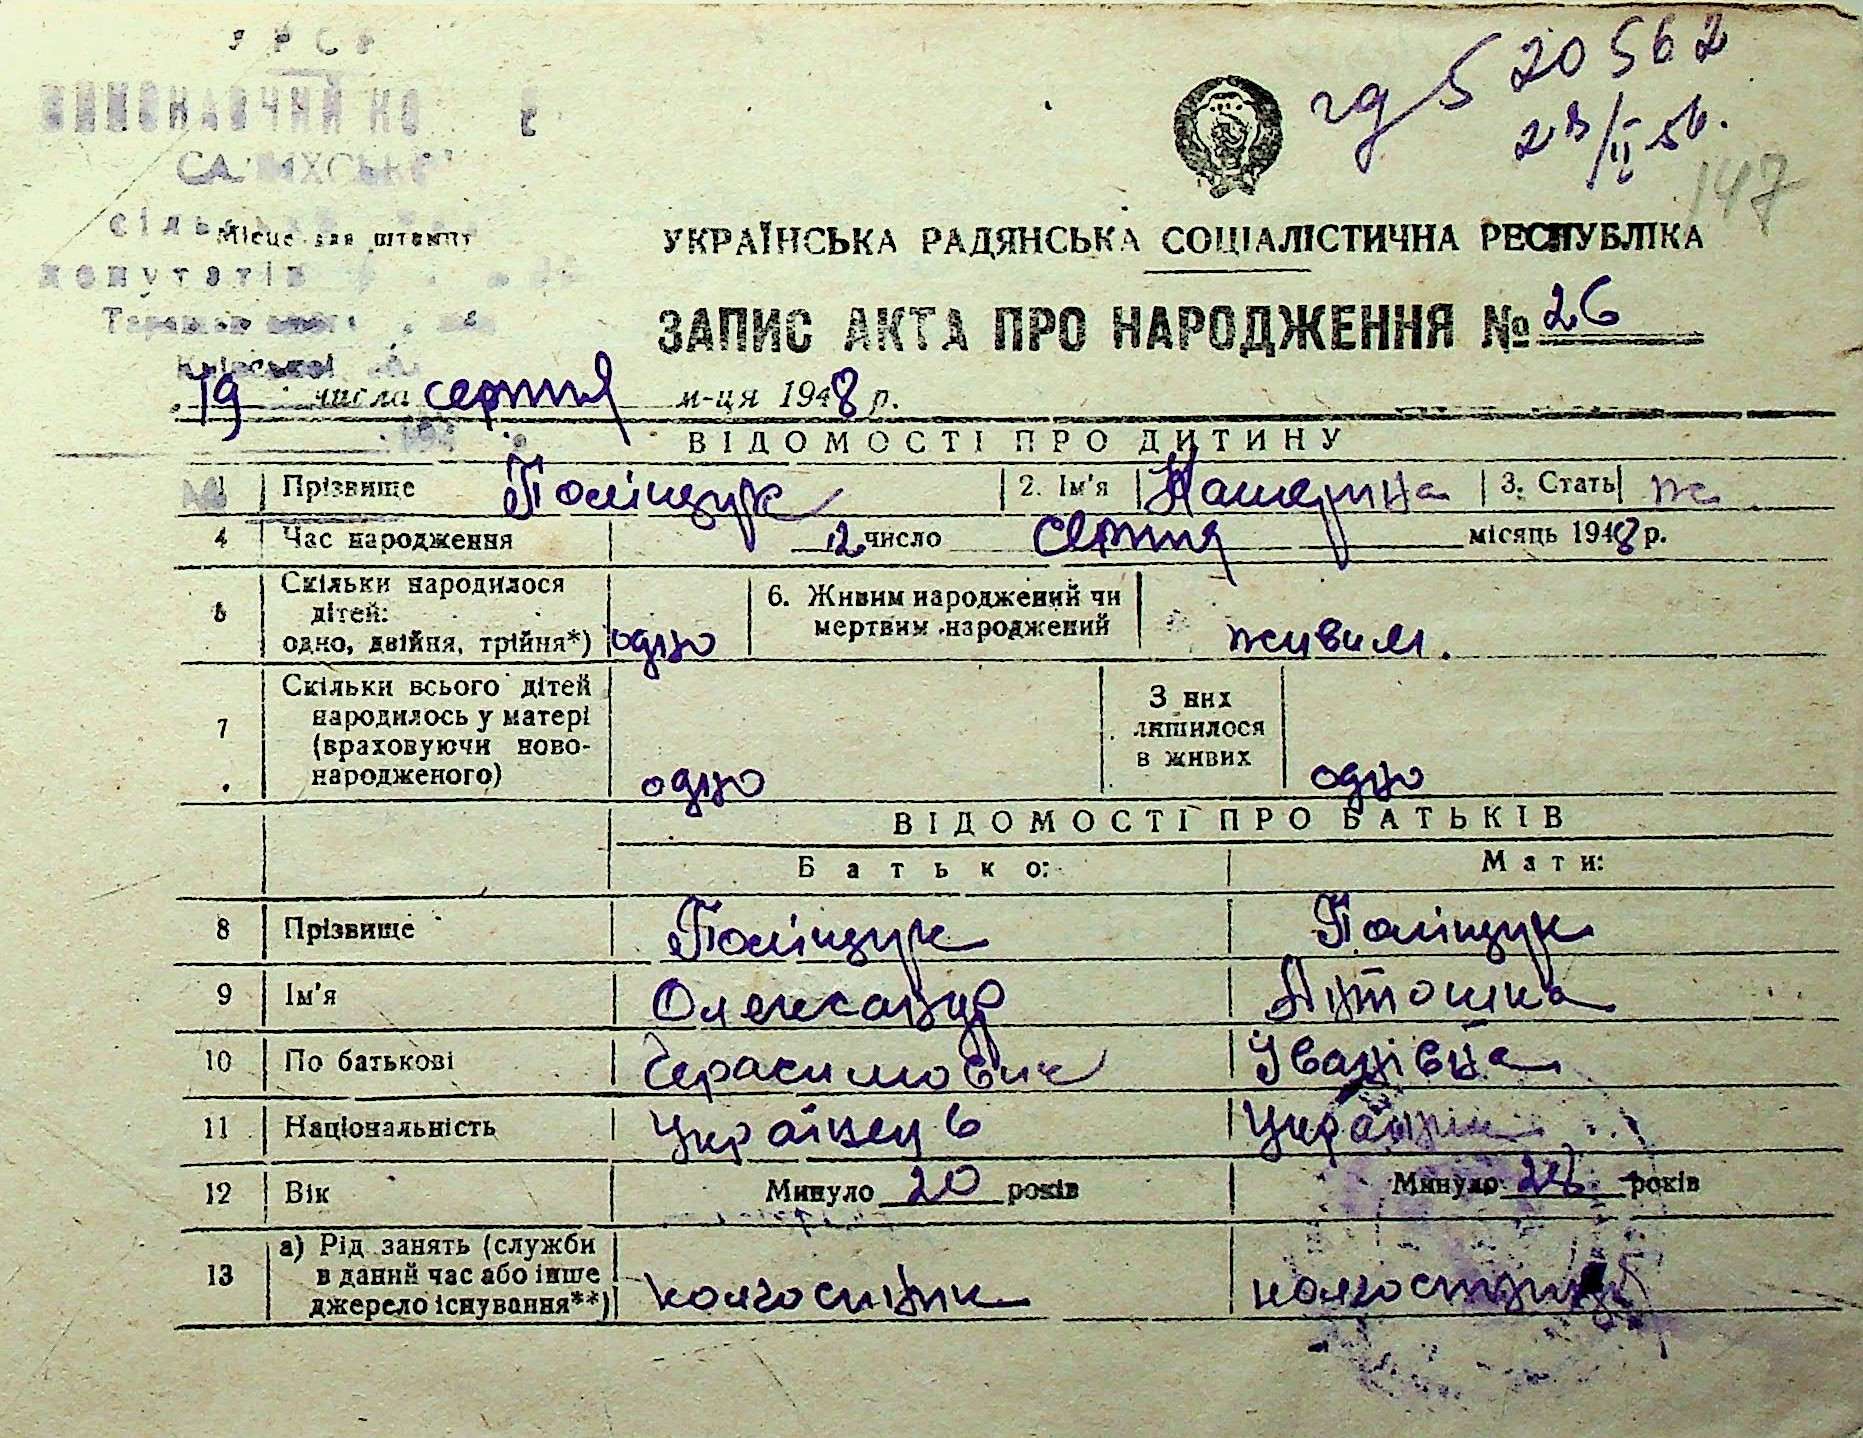 УРСР
ВИКОНАВЧИЙ КО
сіль
Місце для штампу
депутатів
Київської
гд 5 20562
23/II 56.
147
УКРАЇНСЬКА РАДЯНСЬКА СОЦІАЛІСТИЧНА РЕСПУБЛІКА
ЗАПИС АКТА ПРО НАРОДЖЕННЯ № 26
19 числа серпня м-ця 1948 р.
ВІДОМОСТІ ПРО ДИТИНУ
1 Прізвище Поліщук 2. Ім'я Катерина 3. Стать ж
4 Час народження 12 число серпня місяць 1948 р.
5 Скільки народилося
дітей:
одно, двійня, трійня*) одно 6. Живим народжений чи
мертвим народжений живим.
7 Скільки всього дітей
народилось у матері
(враховуючи ново-
народженого) одно З них
лишилося
в живих одно
ВІДОМОСТІ ПРО БАТЬКІВ
Батько: Мати:
8 Прізвище Поліщук Поліщук
9 Ім'я Олександр Антошка
10 По батькові Герасимович Іванівна
11 Національність Українець Українка
12 Вік Минуло 20 років Минуло років
13 а) Рід занять (служби
в даний час або інше
джерело існування**) колгоспник колгоспниця